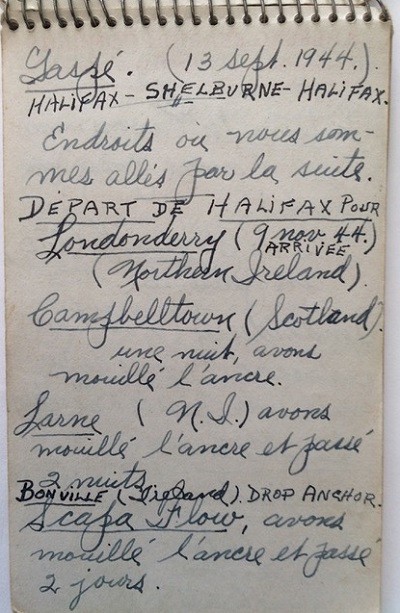 Gaspé. (13 sept. 1944.)
HALIFAX - SHELBURNE - HALIFAX.
Endroits où nous som-
mes allés par la suite.
DÉPART DE HALIFAX POUR
Londonderry (9 nov 44.)
ARRIVÉE
(Northern Ireland).
Campbelltown (Scotland).
une nuit, avons
mouillé l'ancre.
Larne (N.I.) avons
mouillé l'ancre et passé
2 nuits.
BONVILLE (Ireland). DROP ANCHOR.
Scapa Flow, avons
mouillé l'ancre et passé
2 jours.